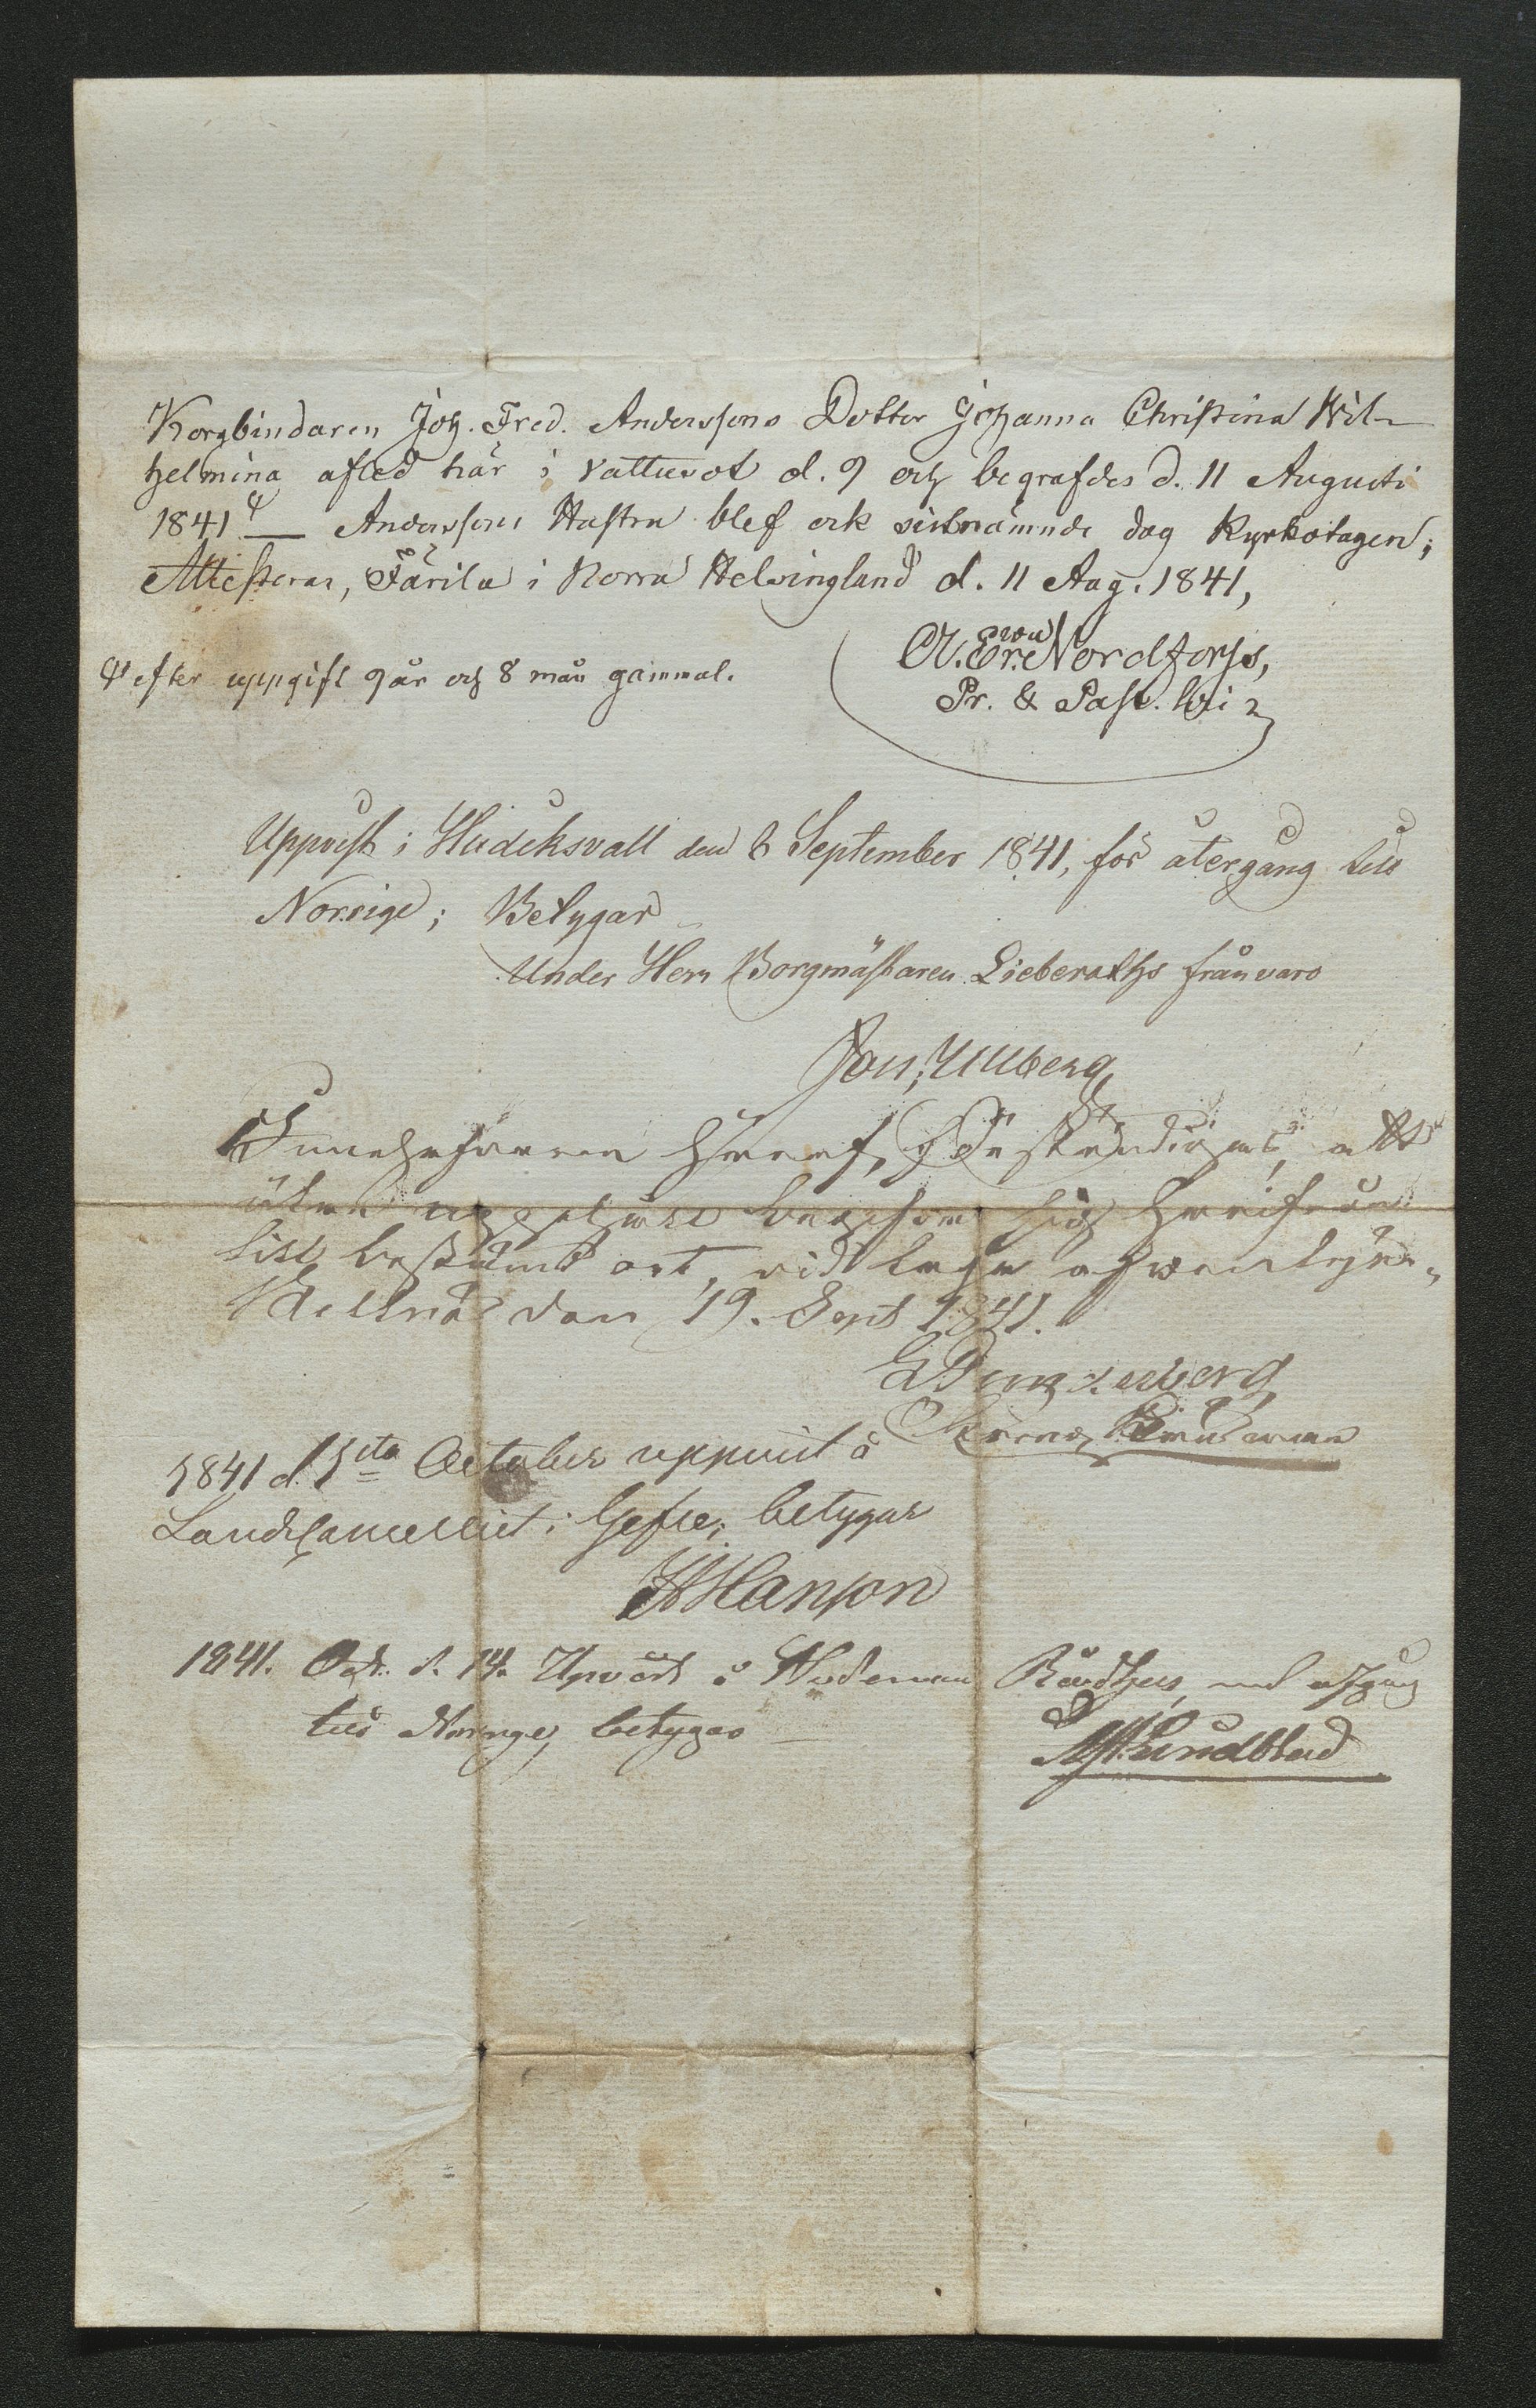 Korgbindaren Joh. Fred. Anderssons Dotter Johanna Christina Wil-
helmina afled här i Vattusot d. 9 och begrafdes d. 11 Augusti
1841. — Anderssons Hustru blef ock sistnämnde dag Kyrkotagen;
Attesterar, Färila i Norra Helsingland d. 11 Aug. 1841,
A. Er. Nordforss,
Pr. & Past.
efter uppgift 9 år och 8 mån gammal.
Uppvist i Hudiksvall den 6 September 1841, för återgång till
Norrige; Betygar
Under Herr Borgmästaren Lieberaths frånvaro
Jon; Ullberg
Innehafvaren häraf, att
sist bestämd ort, vid laga
den 19. Sept 1841.
1841 d. 5ta October uppvist å
Landscancelliet i Gefle; betygar
Hanson
1841. Oct. d. 14. Upvist å Hedemora Rådhus, med afgång
till Norrige, betygar
Sundblad